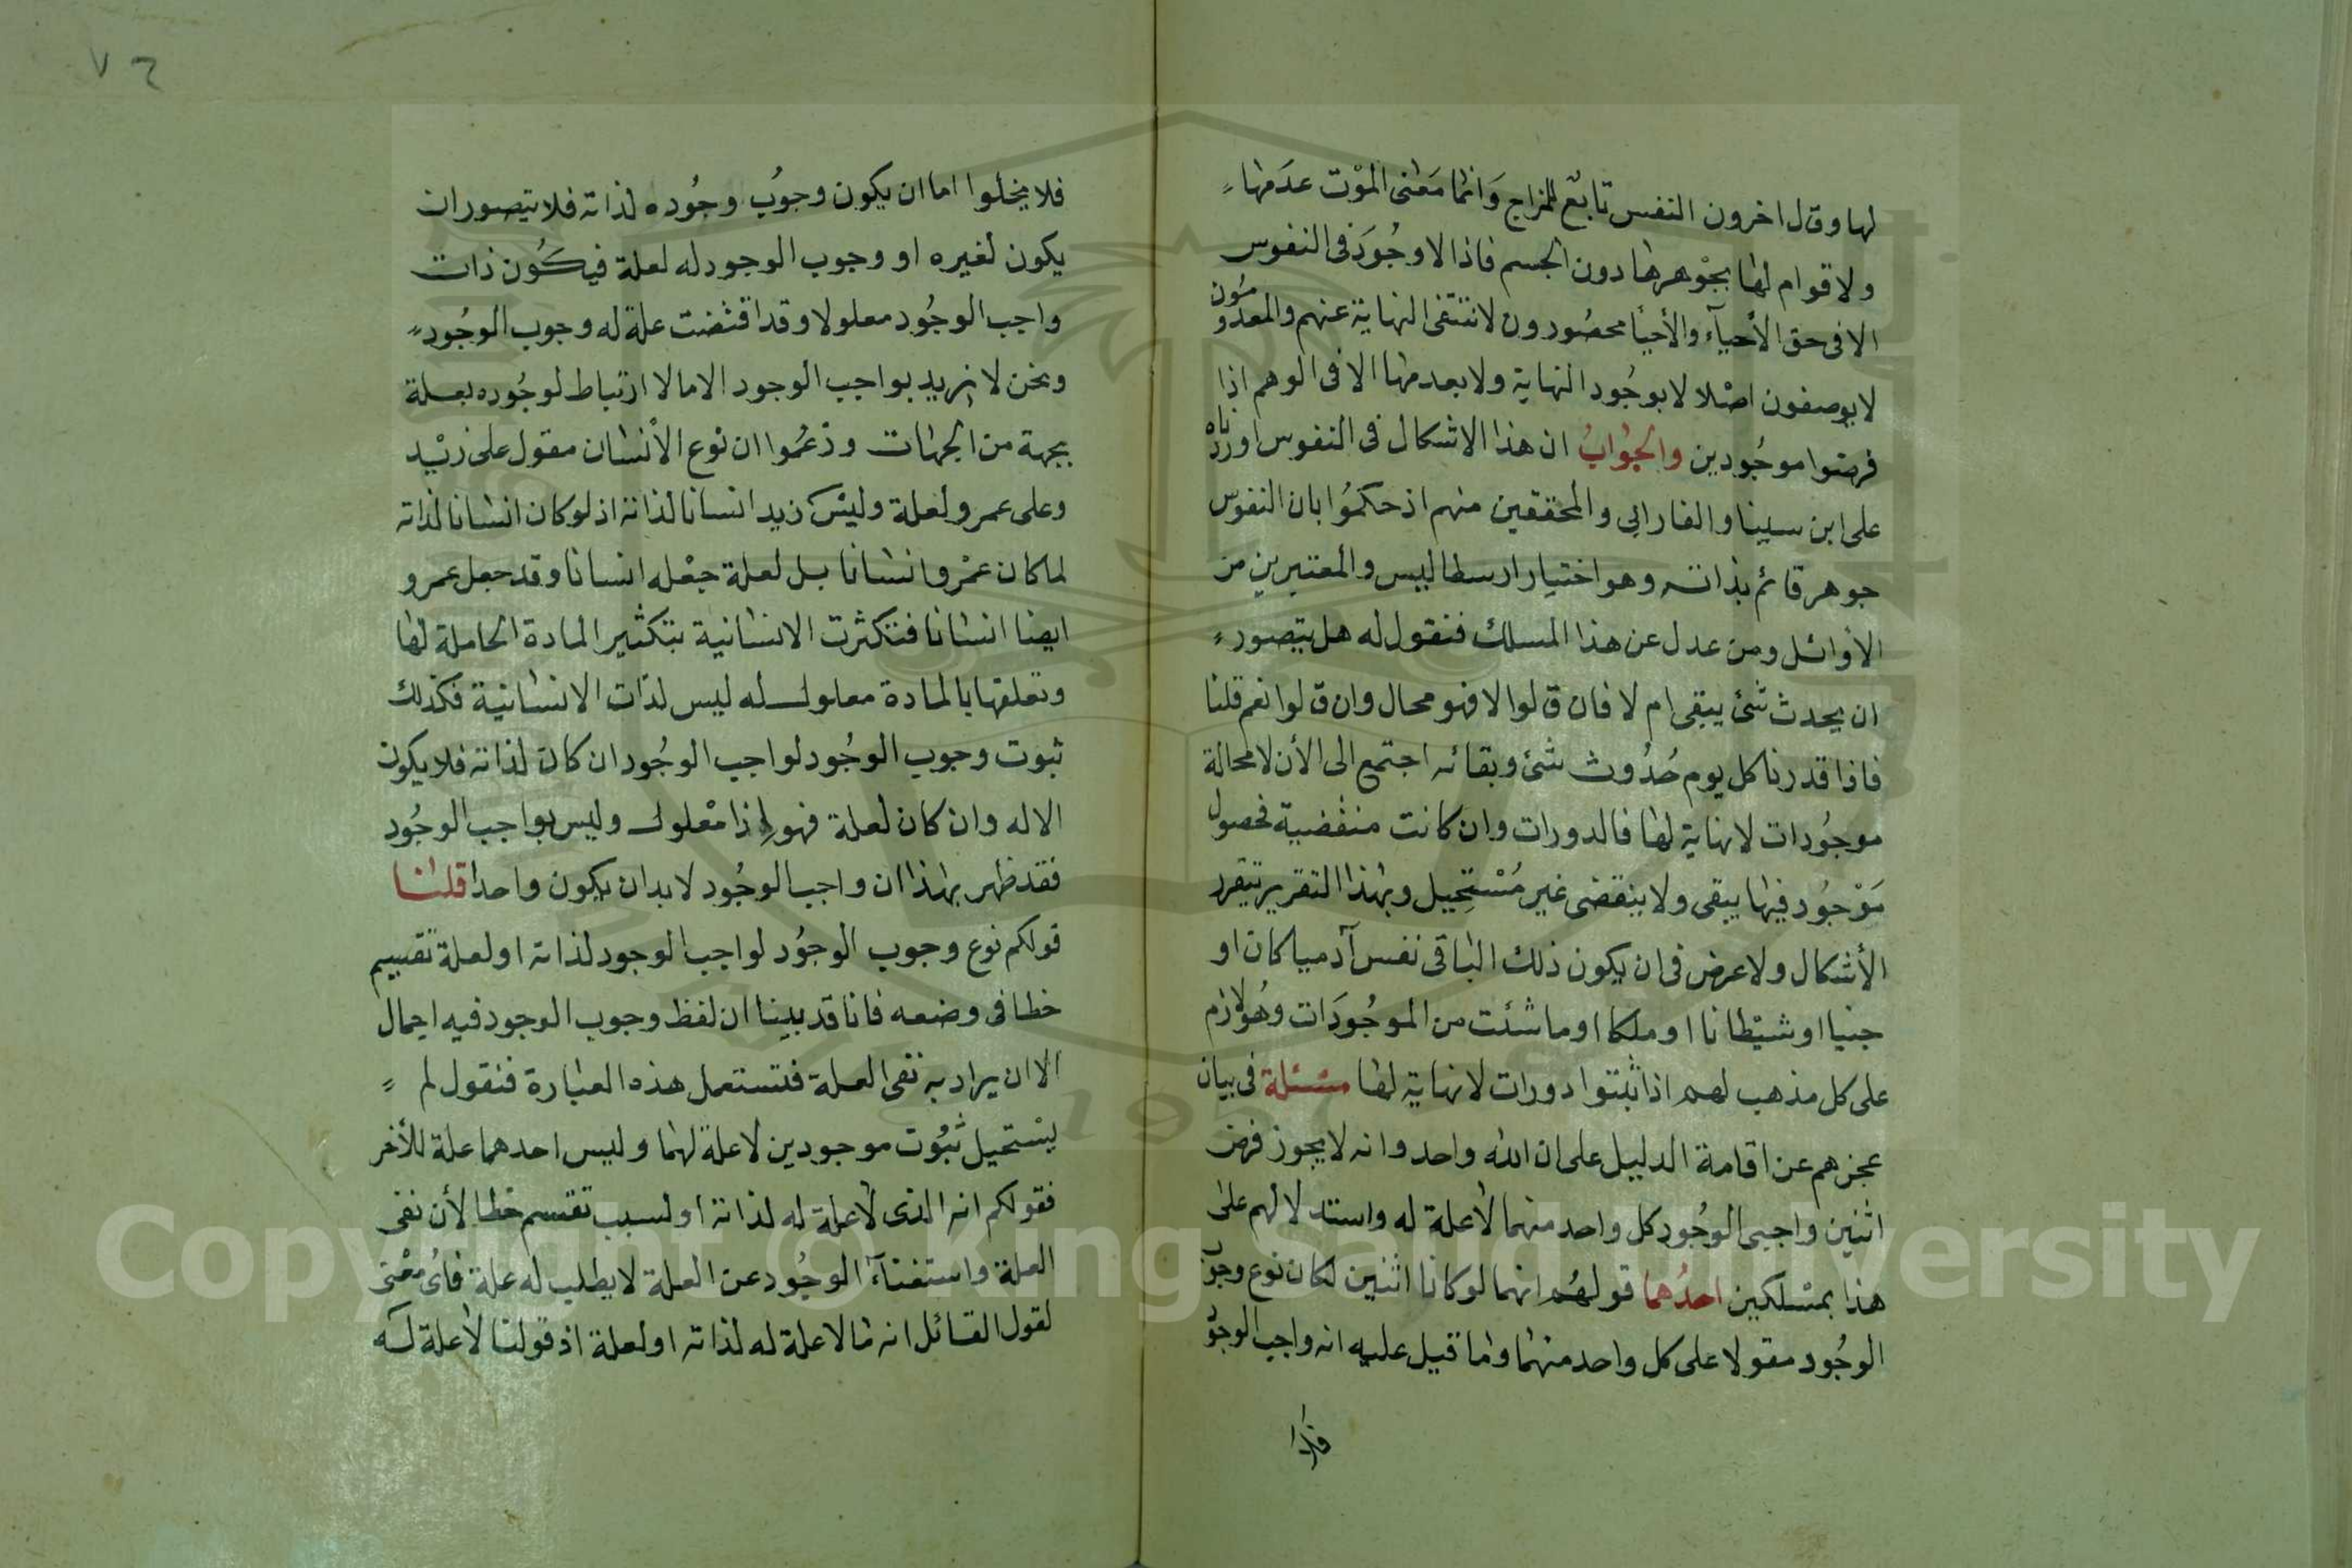 لها وقال اخرون النفس تابع للمزاج وَانما مَعنى الموْت عدَمها
ولا قوام لها بجوْهرها دون الجسم فاذا لا وجُودَ فى النفوس
الا فى حق الأحيآء والأحيأ محصُورون لا تنتفى النهاية عنهم والمعدُومُون
لا يوصفون اصْلا لا بوجُود النهاية ولا بعدمها الا فى الوهم اذا
فرضوا موجُودين والجوابُ ان هذا الاشكال فى النفوس اوردناه
على ابن سينا والفارابى والمحققين منهم اذ حكمُوا بان النفوس
جوهر قائم بذاته وهو اختيار ارسطاليس والمعتبرين من
الأوائل ومن عدل عن هذا المسلك فنقول له هل يتصور
ان يحدث شئ يبقى ام لا فان قالوا لا فهو محال وان قالوا نعم قلنا
فاذا قدرنا كل يوم حُدُوث شئ وبقائه اجتمع الى الأن لا محالة
موجُودات لا نهاية لها فالدورات وان كانت منقضية فحصول
مَوْجوُد فيها يبقى ولا ينقضى غير مُسْتحِيل وبهذا التقرير يتقرر
الأشكال ولا غرض فى ان يكون ذلك الباقى نفس آدميا كان او
جنيا او شيْطانا او ملكا او ما شئت من الموجُودَات وهُو لازم
على كل مذهب لهم اذا ثبتوا دورات لا نهاية لها مسئلة فى بيان
عجزهم عن اقامة الدليل على ان الله واحد وانه لا يجوز فرض
اثنين واجبى الوجُود كل واحد منهما لا علة له واستدلالهم على
هذا بمسْلكين احدُهما قولهُم انهما لو كانا اثنين لكان نوع وجوب
الوجُود مقولا على كل واحد منهما وما قيل عليه انه واجب الوجوُد
فلا
٧٦
فلا يخلوا اما ان يكون وجوُب وجُوده لذاته فلا يتصور ان
يكون لغيره او وجوب الوجود له لعلة فيكُون ذات
واجب الوجُود معلولا وقد اقتضت علة له وجوب الوجُود
ونحن لا نريد بواجب الوجود الا ما لا ارتباط لوجُوده بعلة
بجهة من الجهات وزعمُوا ان نوع الأنسان مقول على زيْد
وعلى عمرو لعلة وليْس زيد انسانا لذاته اذ لو كان انسانا لذاته
لما كان عمْرو انسانا بل لعلة جعْله انسانا وقد جعل عمرو
ايضا انسانا فتكثرت الانسانية بتكثير المادة الحاملة لها
وتعلقها بالمادة معلول له ليس لذات الانسانية فكذلك
ثبوت وجوب الوجُود لواجب الوجُود ان كان لذاته فلا يكون
الا له وان كان لعلة فهو اذا معْلول وليس بواجب الوجُود
فقد ظهر بهذا ان واجب الوجُود لا بد ان يكون واحدا قلنا
قولكم نوع وجوب الوجوُد لواجب الوجود لذاته او لعلة تقسيم
خطا فى وضعه فانا قد بينا ان لفظ وجوب الوجود فيه اجمال
الا ان يراد به نفى العلة فتستعمل هذه العبارة فنقول لم
يسْتحيل ثبُوت موجودين لا علة لهما وليس احدهما علة للأخر
فقولكم انه الذى لا علة له لذاته او لسبب تقسم خطا لأن نفى
العلة واستغنآء الوجُود عن العلة لا يطلب له علة فاىُ معْنى
لقول القائل انه ما لا علة له لذاته او لعلة اذ قولنا لا علة له
Copyright © King Saud University
1957